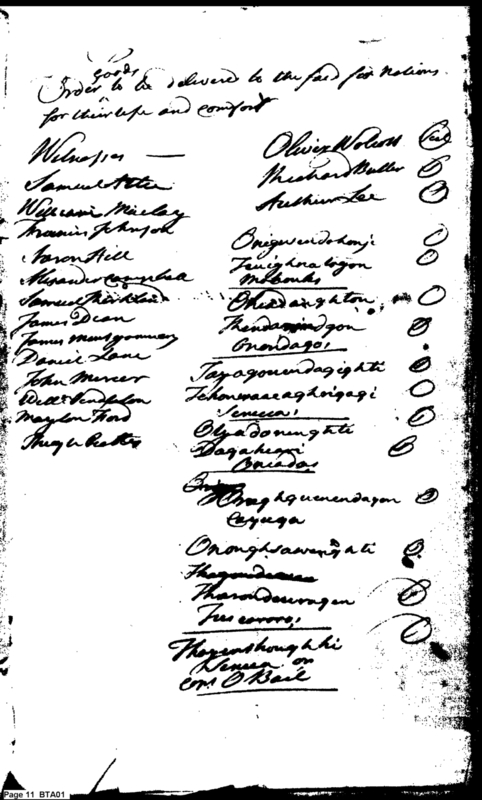 goods
Order to be delivered to the said six Nations
for their use and comfort
Witnesses —
Samuel Atlee
William Maclay
Francis Johnson
Aaron Hill
Alexander Campbell
Samuel Kirkland
James Dean
James Montgomery
Daniel Lane
John Mercer
Will: Pendleton
Maylon Ford
Hugh
Oliver Wolcott Seal
Richard Butler
Arthur Lee
Onigwendohonji
Teuighnatogon
Mohawks
Oheadaughton
Onondagos
Tayagonendagighti
Tehonwaeaaghriyagi
Senecas
Otyadonenghti
Dagaheari
Oneidas
Cayuga
Ononghsawenghti
Tharondawagen
Tuscaroros
Thayenthoughki
Seneca or
O Bail
Page 11 BTA01